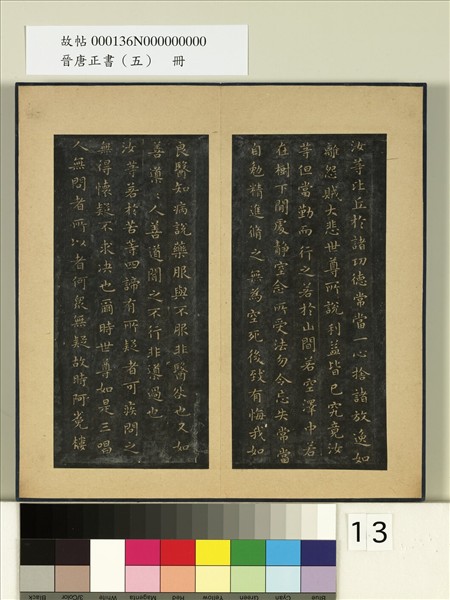 故帖 000136N000000000
晉唐正書（五） 冊
汝等比丘於諸功德常當一心捨諸放逸如
離怨賊大悲世尊所說利益皆已究竟汝
等但當勤而行之若於山間若空澤中若
在樹下閒處靜室念所受法勿令忘失常當
自勉精進脩之無為空死後致有悔我如
良醫知病說藥服與不服非醫咎也又如
善導〻人善道聞之不行非導過也
汝等若於苦等四諦有所疑者可疾問之
無得懷疑不求决也爾時世尊如是三唱
人無問者所以者何衆無疑故時阿㝹樓
13
Blue Cyan Green Yellow Red Magenta White 3/Color Black